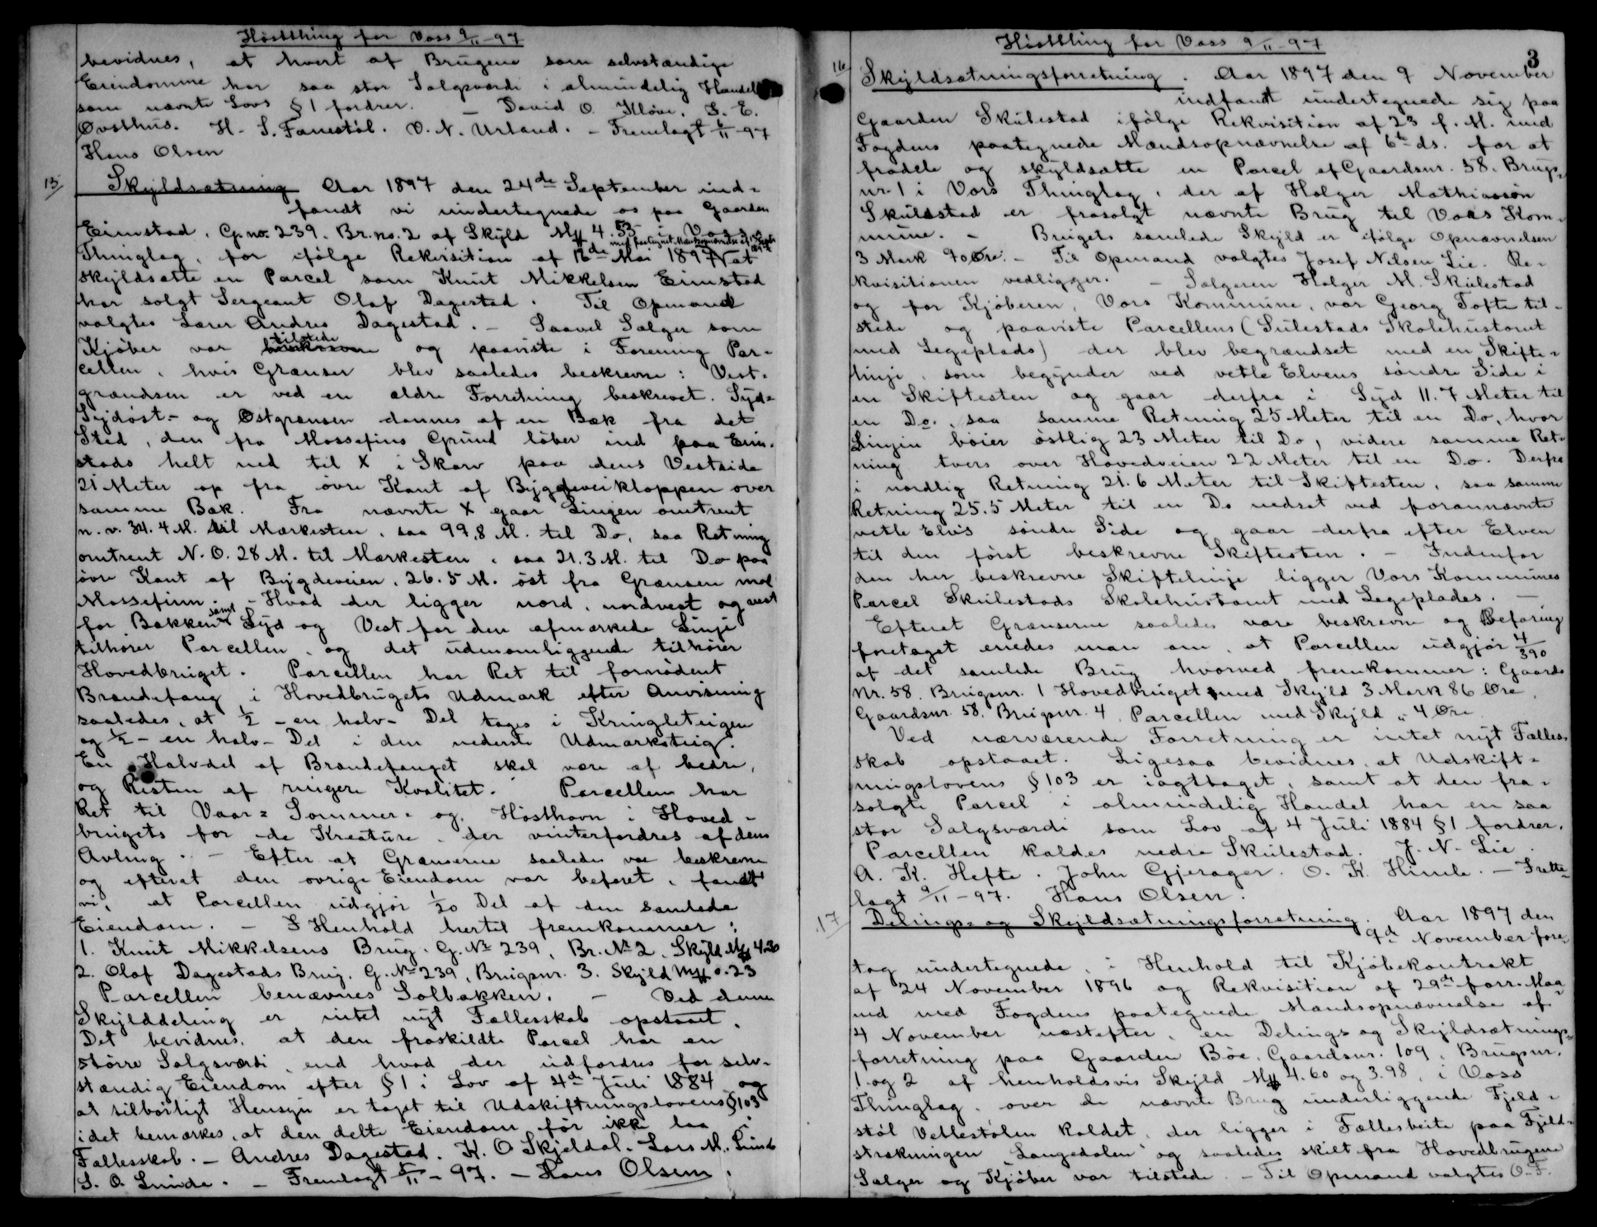 Høstthing for Voss 9/11-97
bevidnes, at hvert af Brugene som selvstændige
Eiendomme har saa stor Salgsværdi i almindelig Handel
som nævnte Lovs § 1 fordrer. - David O. Kløve. S. E.
Øvsthus. H. S. Fanestöl. O. N. Urland. - Fremlagt 9/11-97
Hans Olsen
15/ Skyldsætning Aar 1897 den 24de September ind-
fandt vi undertegnede os paa Gaarden
Eimstad, G. no. 239. Br. no. 2 af Skyld M 4.53 i Voss
Thinglag, for ifølge Rekvisition af 12te Mai 1897 at
skyldsætte en Parcel som Knut Mikkelsen Eimstad
har solgt Sergeant Olaf Dagestad. Til Opmand
valgtes Lærer Andres Dagestad. - Saavel Sælger som
Kjøber var tilstede og paaviste i Forening Par-
cellen, hvis Grænser blev saaledes beskrevne: Vest-
grændsen er ved en ældre Forretning beskrevet. Syd-
Sydöst- og Østgrænsen dannes af en Bæk fra det
Sted, den fra Mossefins Grund löber ind paa Eim-
stads helt ned til X i Skarv paa dens Vestside
21 Meter op fra övre Kant af Bygdeveikloppen over
samme Bæk. Fra nævnte X gaar Lingen omtrent
n. v. 34.4 M. til Mærkesten, saa 99,8 M. til Do, saa Retning
omtrent N. O. 28 M. til Mærkesten, saa 21.3 M. til Do paa
övre Kant af Bygdeveien, 26.5 M. öst fra Grænsen mod
Mossefinn. - Hvad der ligger nord, nordvest og vest
for Bækken samt Syd og Vest for den afmærkede Linje
tilhører Parcellen, og det udenomliggende tilhører
Hovedbruget. Parcellen har Ret til fornødent
Brændefang i Hovedbrugets Udmark efter Anvisning
saaledes, at 1/2 - en halv - Del tages i Kringleteigen
og 1/2 - en halv - Del i den nederste Udmarksteig.
En Halvdel af Brændefanget skal være af bedre,
og Resten af ringere Kvalitet. Parcellen har
Ret til Vaar- Sommer- og Høsthavn i Hoved-
brugets for de Kreature, der vinterfordres af dens
Avling. - Efter at Grænserne saaledes var beskrevne
og efterat den øvrige Eiendom var befaret, fandt
vi, at Parcellen udgjør 1/20 Del af den samlede
Eiendom. - I Henhold hertil fremkommer:
1. Knut Mikkelsens Brug. G. No 239, Br. No 2. Skyld M 4.30
2. Olaf Dagestads Brug. G. No 239, Brugsnr. 3. Skyld M 0.23
Parcellen benævnes Solbakken. - Ved denne
Skylddeling er intet nyt Fællesskab opstaaet.
Det bevidnes, at den fraskildte Parcel har en
större Salgsværdi, end hvad der udfordres for selv-
stændig Eiendom efter § 1 i Lov af 4de Juli 1884 og
at tilbörligt Hensyn er taget til Udskiftningslovens § 103
idet bemærkes, at den delte Eiendom før ikke laa i
Fællesskab. - Andres Dagestad. K. O Skjeldal. Lars M. Linde
S. O. Linde. - Fremlagt 9/11-97. - Hans Olsen.
Høstthing for Voss 9/11-97
3
16/ Skyldsætningsforretning. Aar 1897 den 9 November
indfandt undertegnede sig paa
Gaarden Skulestad ifølge Rekvisition af 23 f. M. med
Fogdens paategnede Mandsopnævnelse af 6te ds. for at
fradele og skyldsætte en Parcel af Gaardsnr. 58. Brugs-
nr. 1 i Vors Thinglag, der af Holger Mathiassön
Skulestad er frasolgt nævnte Brug til Voss Kom-
mune. - Brugets samlede Skyld er ifølge Opnævnelsen
3 Mark 90 Øre. - Til Opmand valgtes Josef Nilsen Lie. Re-
kvisitionen vedligger. - Sælgeren Holger M. Skulestad
og for Kjøberen, Vors Kommune, var Georg Tofte til-
stede og paaviste Parcellens (Sulestads Skolehustomt
med Legeplads) der blev begrændset med en Skifte-
linje, som begynder ved vetle Elvens söndre Side i
en Skiftesten og gaar derfra i Syd 11.7 Meter til
en Do., saa samme Retning 25 Meter til en Do, hvor
Linjen böier östlig 23 Meter til Do, videre samme Ret-
ning tvers over Hovedveien 22 Meter til en Do. Derfra
i nordlig Retning 21.6 Meter til Skiftesten, saa samme
Retning 25.5 Meter til en Do nedsat ved forannævnte
vetle Elvs söndre Side og gaar derfra efter Elven
til den først beskrevne Skiftesten. - Indenfor
den her beskrevne Skiftelinje ligger Vors Kommunes
Parcel Skulestads Skolehustomt med Legeplades. -
Efterat Grænserne saaledes vare beskrevne og Befaring
foretaget enedes man om, at Parcellen udgjør 4/390
af det samlede Brug hvorved fremkommer: Gaards-
Nr. 58. Brugsnr. 1 Hovedbruget med Skyld 3 Mark 86 Øre,
Gaardsnr. 58. Brugsnr. 4, Parcellen med Skyld " 4 Øre
Ved nærværende Forretning er intet nyt Fælles-
skab opstaaet. Ligesaa bevidnes, at Udskift-
ningslovens § 103 er iagttaget, samt at den fra-
solgte Parcel i almindelig Handel har en saa
stor Salgsværdi som Lov af 4 Juli 1884 § 1 fordrer.
Parcellen kaldes nedre Skulestad. J. N. Lie.
A. K. Hefte. John Gjerager. O. K. Himle. - Frem-
lagt 9/11-97. Hans Olsen.
17 Delings- og Skyldsætningsforretning. Aar 1897 den
9de November fore-
tog undertegnede, i Henhold til Kjøbekontrakt
af 24 November 1896 og Rekvisition af 29de forr. Maa-
ned med Fogdens paategnede Mandsopnævnelse af
4 November næstefter, en Delings og Skyldsætnings-
forretning paa Gaarden Böe, Gaardsnr. 109, Brugsnr.
1 og 2 af henholdsvis Skyld M 4.60 og 3.98, i Voss
Thinglag, over de nævnte Brug underliggende Fjeld-
stöl Vetlestölen kaldet, der ligger i Fællesbeite paa Fjeld-
strækningen Langedalen og saaledes skilt fra Hovedbrugene
Sælger og Kjøber var tilstede. - Til Opmand valgtes O. F.